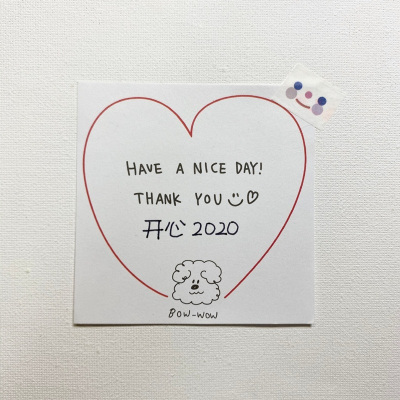 HAVE A NICE DAY!
THANK YOU
开心 2020
BOW-WOW